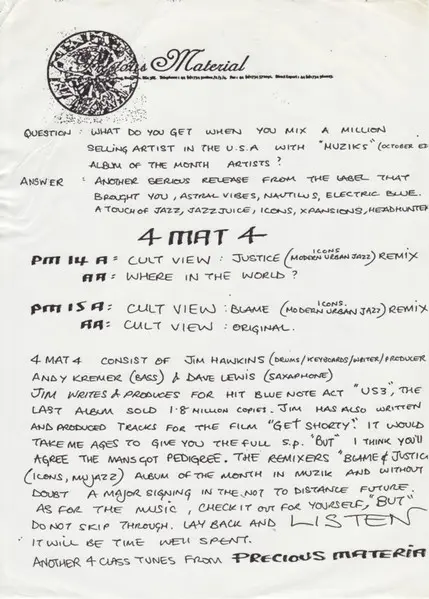 Material
QUESTION : WHAT DO YOU GET WHEN YOU MIX A MILLION
SELLING ARTIST IN THE U.S.A WITH "MUZIKS" (OCTOBER
ALBUM OF THE MONTH ARTISTS ?
ANSWER : ANOTHER SERIOUS RELEASE FROM THE LABEL THAT
BROUGHT YOU, ASTRAL VIBES, NAUTILUS, ELECTRIC BLUE.
A TOUCH OF JAZZ, JAZZ JUICE, ICONS, XPANSIONS, HEADHUNTE
4 MAT 4
PM 14 A = CULT VIEW : JUSTICE (ICONS MODERN URBAN JAZZ) REMIX
AA = WHERE IN THE WORLD ?
PM 15 A = CULT VIEW : BLAME (ICONS. MODERN URBAN JAZZ) REMIX
AA = CULT VIEW : ORIGINAL.
4 MAT 4 CONSIST OF JIM HAWKINS (DRUMS/KEYBOARDS/WRITER/PRODUCER
ANDY KREMER (BASS) & DAVE LEWIS (SAXAPHONE)
JIM WRITES & PRODUCES FOR HIT BLUE NOTE ACT "US3", THE
LAST ALBUM SOLD 1.8 MILLION COPIES. JIM HAS ALSO WRITTEN
AND PRODUCED TRACKS FOR THE FILM "GET SHORTY". IT WOULD
TAKE ME AGES TO GIVE YOU THE FULL S.P. "BUT" I THINK YOU'LL
AGREE THE MANS GOT PEDIGREE. THE REMIXERS "BLAME & JUSTIC
(ICONS, MUJAZZ) ALBUM OF THE MONTH IN MUZIK AND WITHOUT
DOUBT A MAJOR SIGNING IN THE NOT TO DISTANCE FUTURE.
AS FOR THE MUSIC, CHECK IT OUT FOR YOURSELF, "BUT"
DO NOT SKIP THROUGH. LAY BACK AND LISTEN
IT WILL BE TIME WELL SPENT.
ANOTHER 4 CLASS TUNES FROM PRECIOUS MATERIA